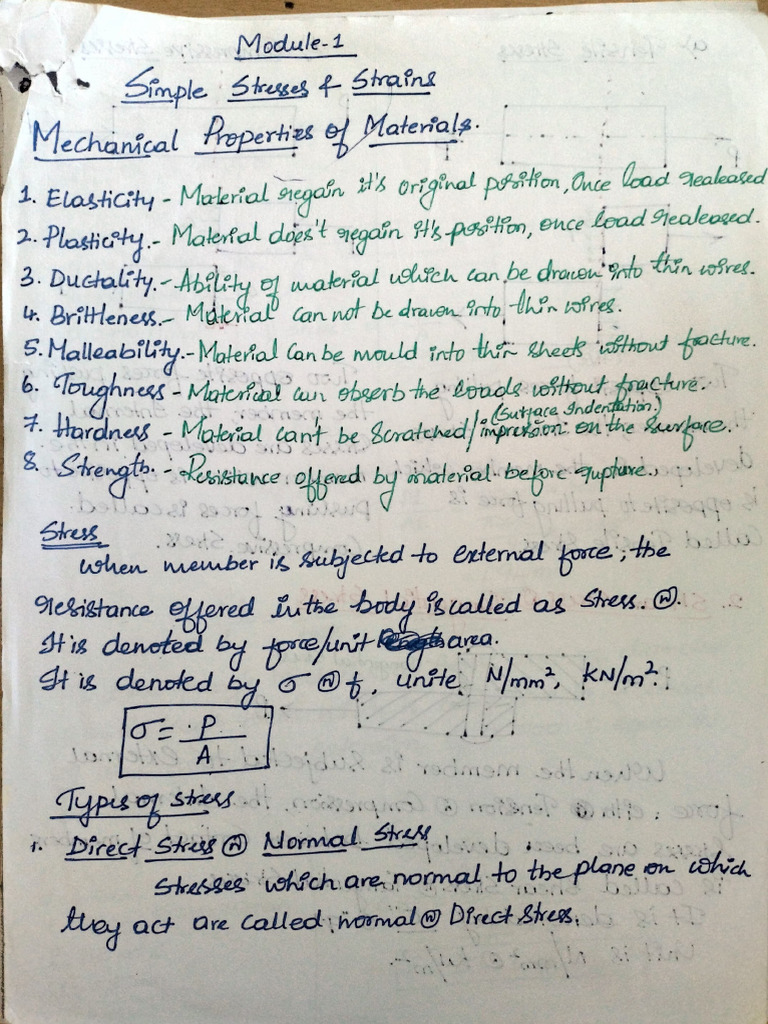 Module-1
Simple Stresses & Strains
Mechanical Properties of Materials.
1. Elasticity - Material regain it's original position, Once load realeased
2. Plasticity. - Material does't regain it's position, once load realeased.
3. Ductality. - Ability of material which can be drawn into thin wires.
4. Brittleness. - Material can not be drawn into thin wires.
5. Malleability. - Material can be mould into thin sheets without fracture.
6. Toughness - Material can observb the loads without fracture.
(Surface Indentation.)
7. Hardness - Material can't be Scratched/impression on the surface.
8. Strength. - Resistance offered by material before rupture.
Stress
when member is subjected to external force, the
resistance offered in the body is called as Stress. @.
It is denoted by force/unit area.
It is denoted by σ @ f, unite N/mm², kN/m².
σ = P/A
Types of stress
1. Direct Stress @ Normal Stress
Stresses which are normal to the plane on which
they act are called normal @ Direct Stress.